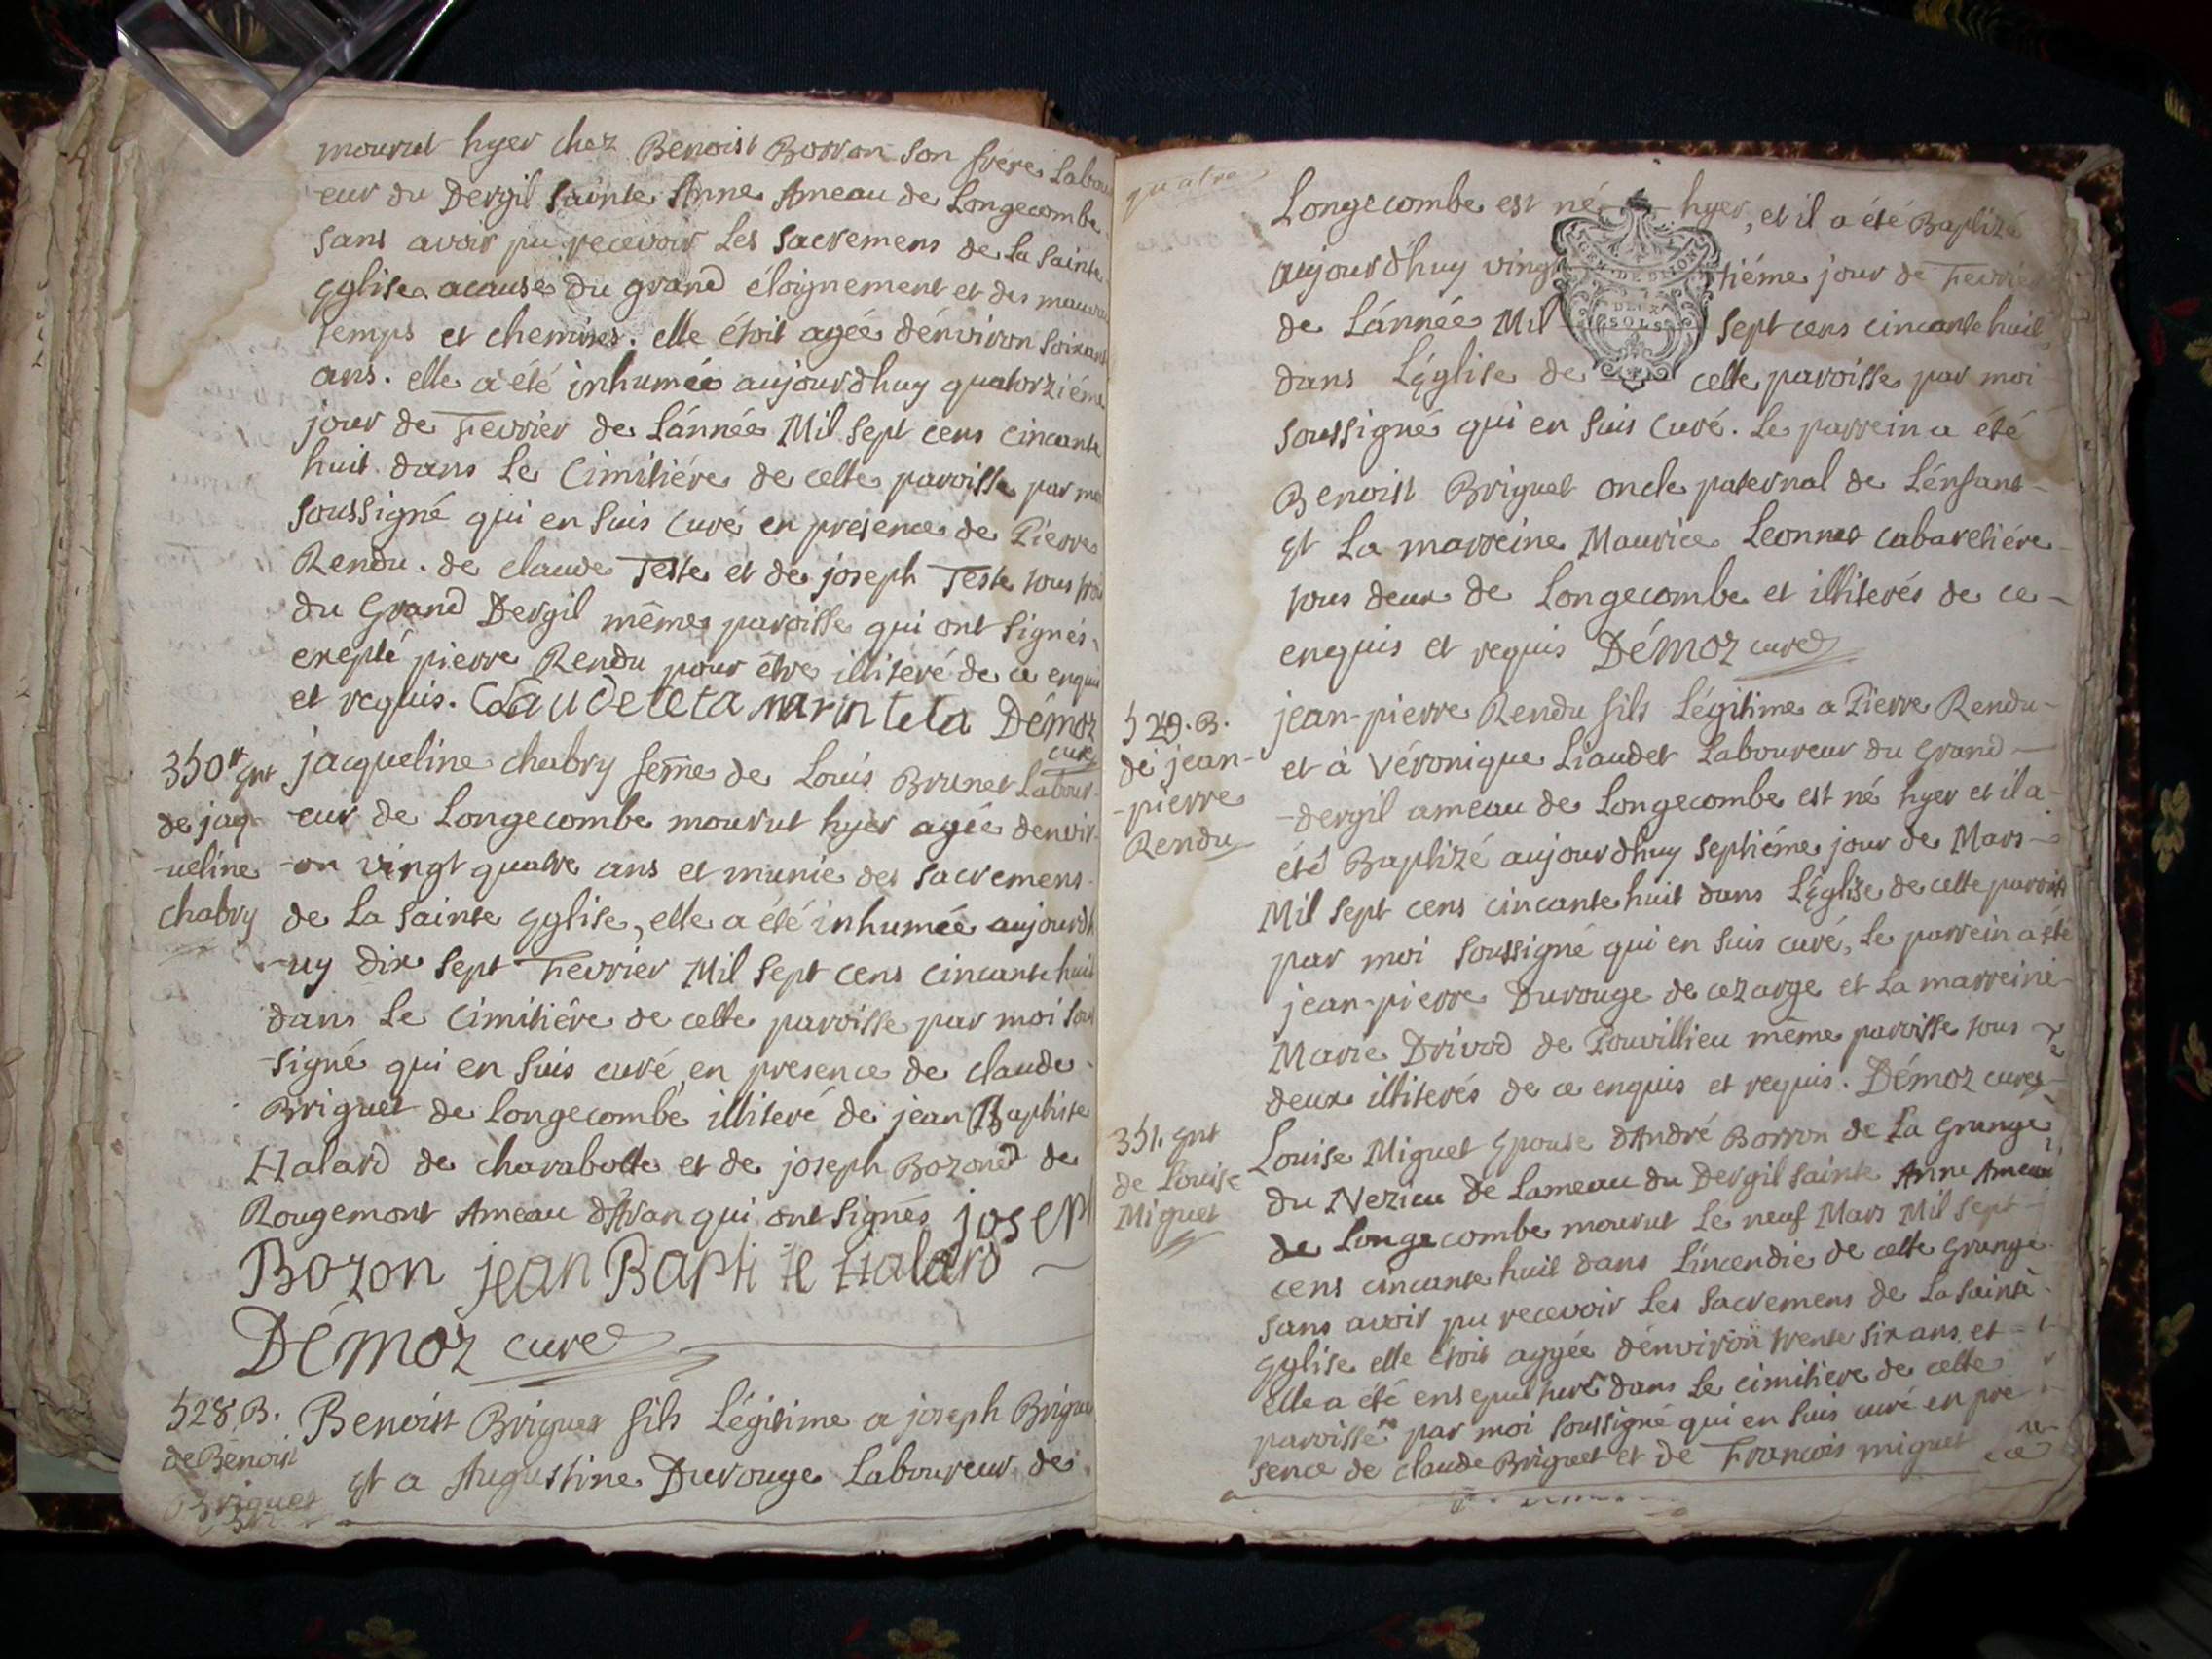 mourut hyer chez Benoist Borron son frére Labou
eur du Dergil sainte Anne Ameau de Longecombe
sans avoir pu recevoir Les sacremens de La sainte
Eglise acause du grand éloignement et des mauva
temps et chemins. elle étoit agée dénviron soixant
ans. elle a été inhumée aujourdhuy quatorziéme
jour de Fevrier de L'année Mil sept cens cincante
huit dans Le Cimitiére de cette paroisse par moi
soussigné qui en suis curé en presence de Pierre
Rendu. de claude Teste et de joseph Teste tous trois
du Grand Dergil même paroisse qui ont signés
exepté pierre Rendu pour étre illiteré de ce enquis
et requis. Claude teta marin teta Démoz
curé
350e Ent
de jaq-
-ueline
chabry
jacqueline chabry feme de Louis Brunet Labour-
eur de Longecombe mourut hyer agée denvir-
-on vingt quatre ans et munie des sacremens
de La sainte Eglise, elle a été inhumée aujourdh
-uy dix sept Fevrier Mil sept cens cincante huit
dans Le Cimitiére de cette paroisse par moi sous
-signé qui en suis curé en presence de claude
Briguet de Longecombe illiteré de jean Baptiste
Halard de charabotte et de joseph Bozoned de
Rougemont Ameau d'Aran qui ont signés joseph
Bozon jean Baptiste Halard
Démoz curé
528. B.
de Benoist
Briguet
Benoist Briguet fils Légitime a joseph Briguet
Et a Augustine Durouge Laboureur de
quatre
Longecombe est né hyer, et il a été Baptizé
aujourdhuy vingt tiéme jour de Fevrier
de L'année Mil sept cens cincante huit
GEN. DE DIJON
DEUX
SOLS
dans L'Eglise de cette paroisse par moi
soussigné qui en suis curé. Le parrein a été
Benoist Briguet oncle paternal de L'énfant
Et La marreine Maurice Leonnet cabaretiére
tous deux de Longecombe et illiterés de ce
enquis et requis Démoz curé
529. B.
de jean-
-pierre
Rendu
jean-pierre Rendu fils Légitime a Pierre Rendu
et à Véronique Liaudet Laboureur du Grand
-dergil ameau de Longecombe est né hyer et il a
été Baptizé aujourdhuy septiéme jour de Mars
Mil sept cens cincante huit dans L'Eglise de cette paroisse
par moi soussigné qui en suis curé, Le parrein a été
jean-pierre Durouge de cezarge et La marreine
Marie Drivod de Pouvillieu même paroisse tous
deux illiterés de ce enquis et requis. Démoz curé
351. Ent
de Louise
Miguet
Louise Miguet Epouse d'André Borron de La Grange
du Nezieu de Lameau du Dergil sainte Anne Ameau
de Longecombe mourut Le neuf Mars Mil sept
cens cincante huit dans L'incendie de cette Grange
sans avoir pu recevoir Les sacremens de La sainte
Eglise elle étoit aggée dénviron trente six ans et
elle a été ensepulturé dans Le cimitiere de cette
paroisse par moi soussigné qui en suis curé en pre
sence de claude Briguet et de Francois miguet